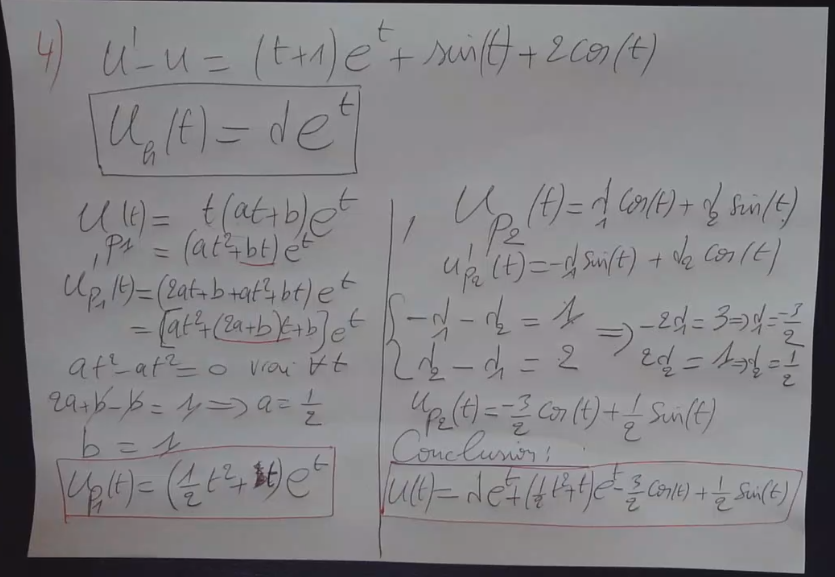 4) u' - u = (t+1)e^t + sin(t) + 2cos(t)
U_h(t) = de^t
U_p1(t) = t(at+b)e^t
= (at²+bt)e^t
U'_p1(t) = (2at+b+at²+bt)e^t
= [at²+(2a+b)t+b]e^t
at²-at²=0 vrai ∀t
2a+b-b = 1 => a = 1/2
b = 1
U_p1(t) = (1/2 t² + t)e^t
, U_p2(t) = d_1 cos(t) + d_2 sin(t)
u'_p2(t) = -d_1 sin(t) + d_2 cos(t)
{ -d_1 - d_2 = 1 => -2d_1 = 3 => d_1 = -3/2
{ d_2 - d_1 = 2 2d_2 = 1 => d_2 = 1/2
U_p2(t) = -3/2 cos(t) + 1/2 sin(t)
Conclusion:
U(t) = de^t + (1/2 t² + t)e^t - 3/2 cos(t) + 1/2 sin(t)